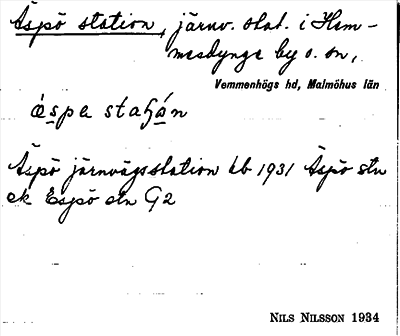 Äspö station, järnv. stat. i Hem-
mesdynge by o. sn,
Vemmenhögs hd, Malmöhus län
äspe staɧån
Äspö järnvägsstation kb 1931 Äspö stn
ek Espö stn G2
NILS NILSSON 1934